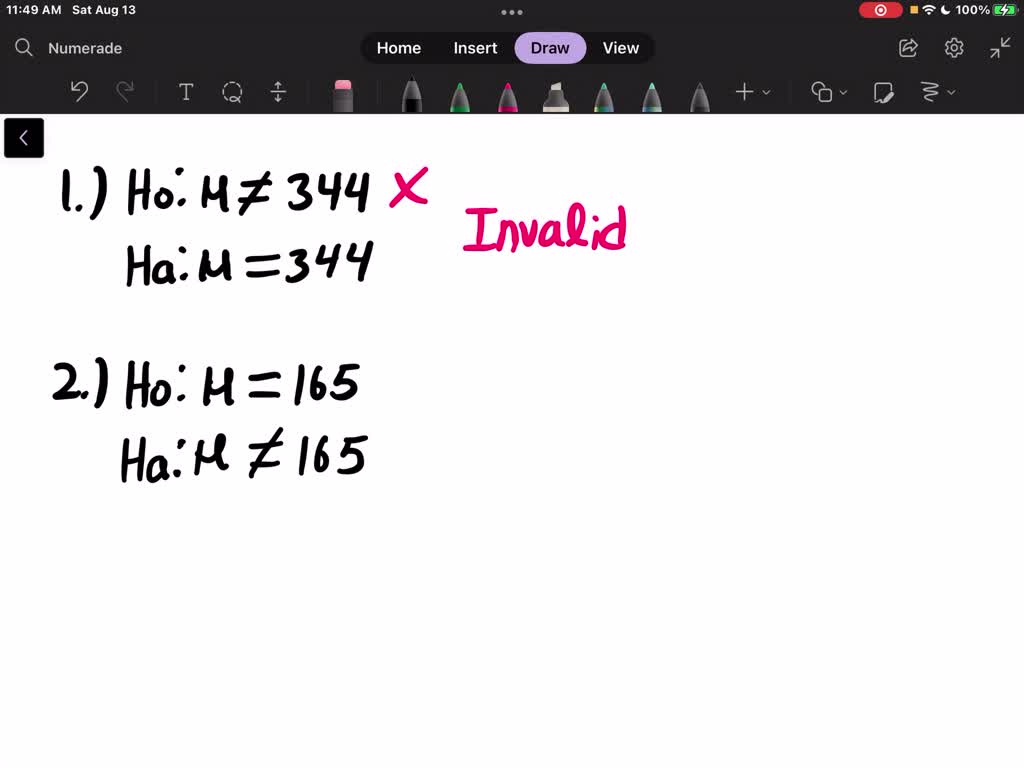 11:49 AM Sat Aug 13
100%
Numerade
Home Insert Draw View
1.) Ho: μ ≠ 344 X
Invalid
Ha: μ = 344
2.) Ho: μ = 165
Ha: μ ≠ 165